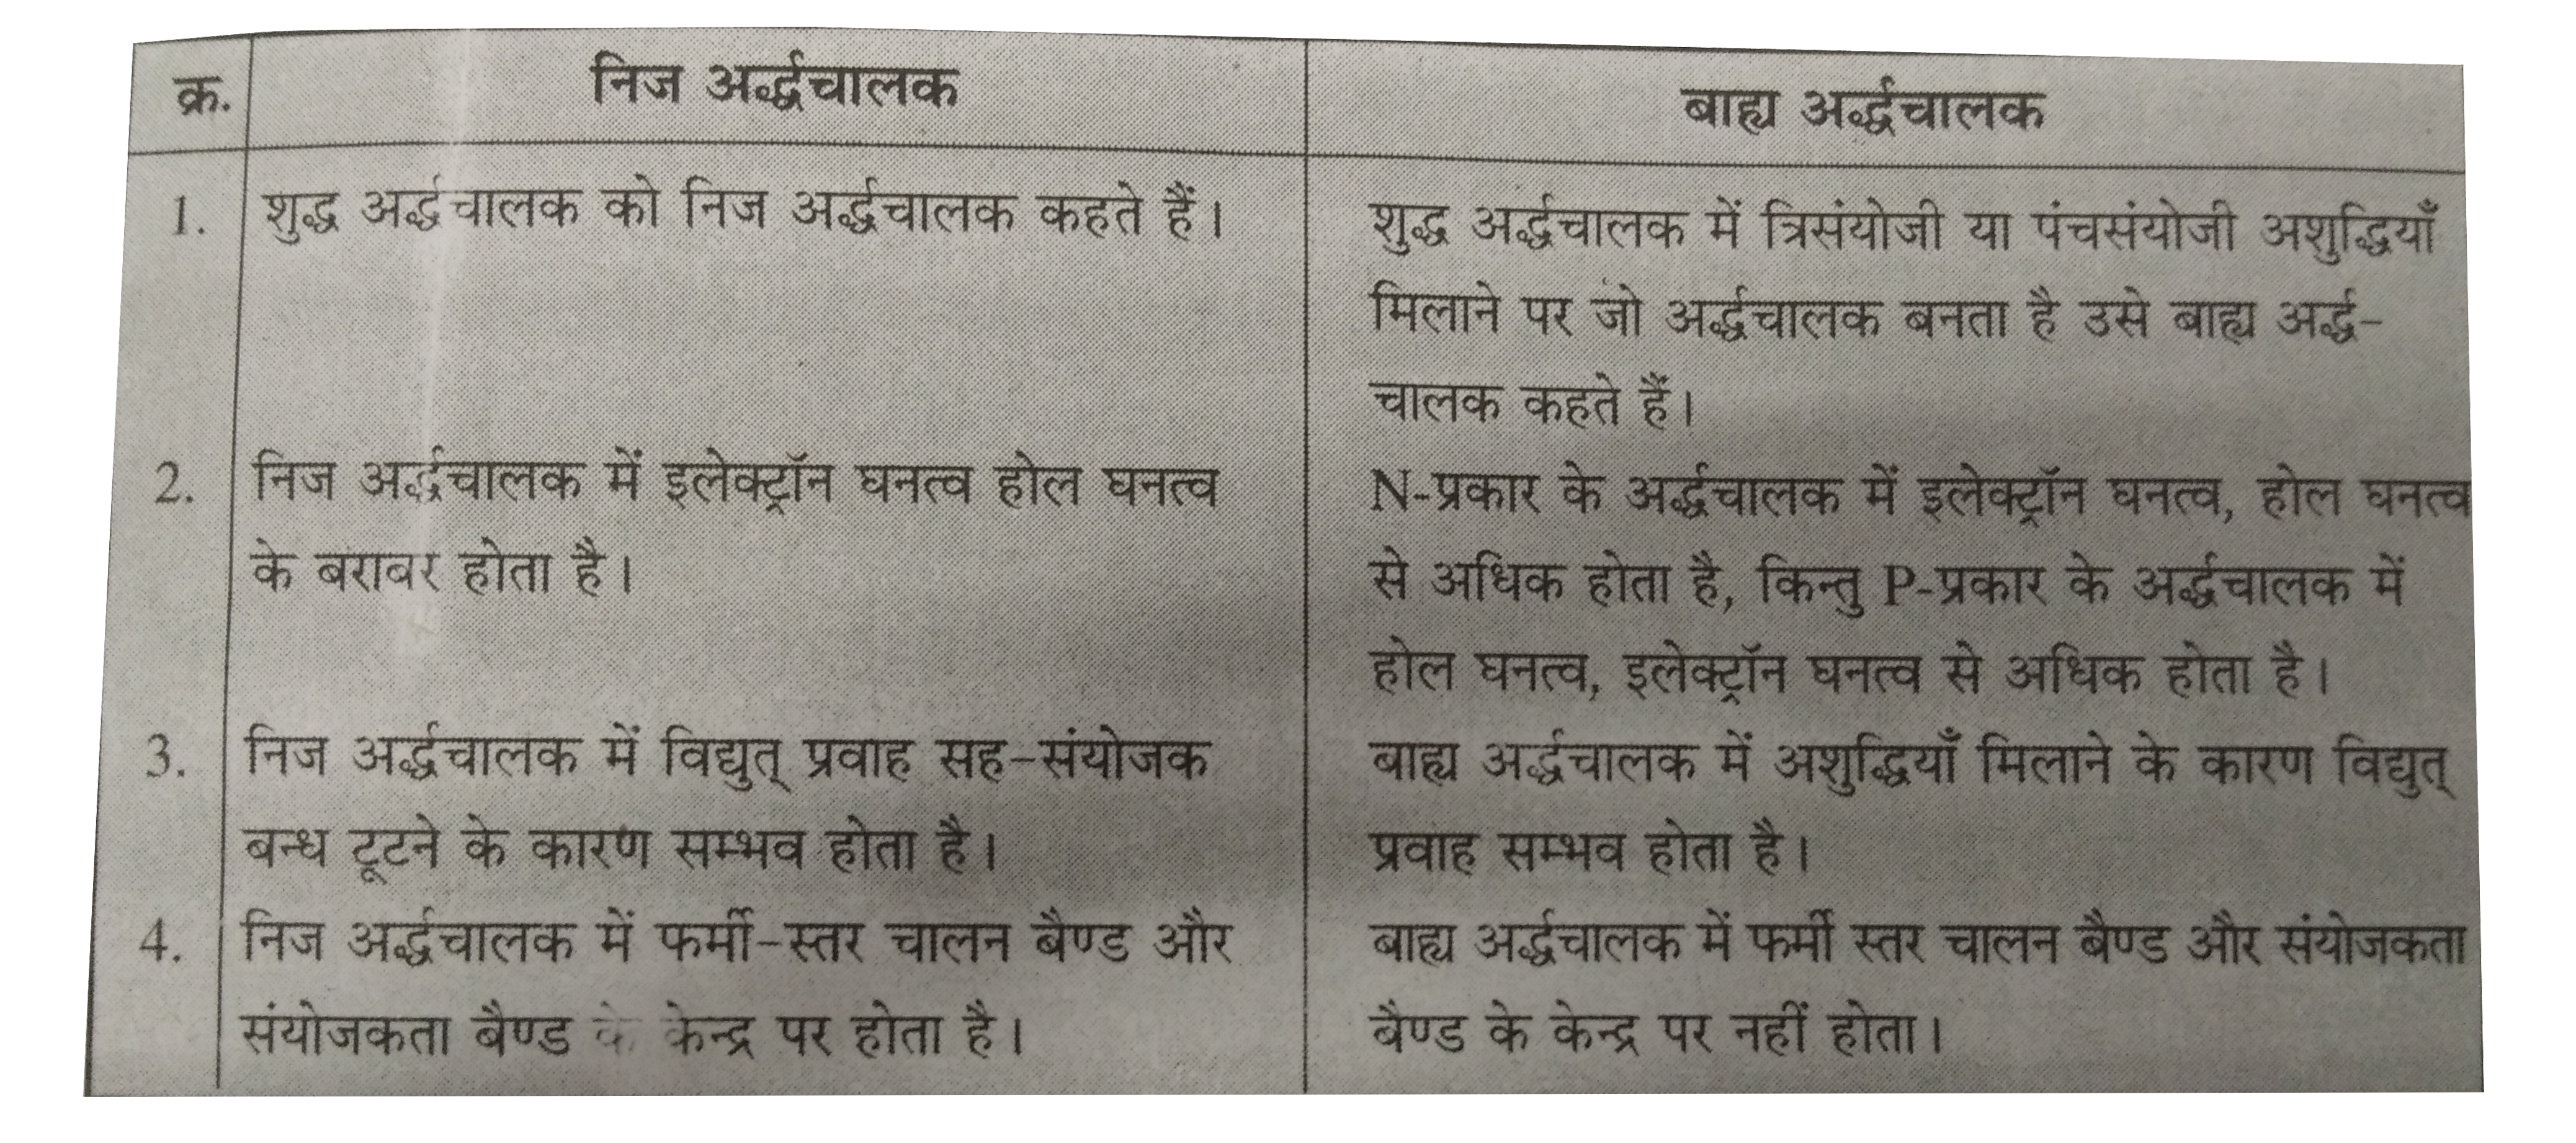 क्र.
निज अर्द्धचालक
बाह्य अर्द्धचालक
1.
शुद्ध अर्द्धचालक को निज अर्द्धचालक कहते हैं।
शुद्ध अर्द्धचालक में त्रिसंयोजी या पंचसंयोजी अशुद्धियाँ
मिलाने पर जो अर्द्धचालक बनता है उसे बाह्य अर्द्ध-
चालक कहते हैं।
2.
निज अर्द्धचालक में इलेक्ट्रॉन घनत्व होल घनत्व
के बराबर होता है।
N-प्रकार के अर्द्धचालक में इलेक्ट्रॉन घनत्व, होल घनत्व
से अधिक होता है, किन्तु P-प्रकार के अर्द्धचालक में
होल घनत्व, इलेक्ट्रॉन घनत्व से अधिक होता है।
3.
निज अर्द्धचालक में विद्युत् प्रवाह सह-संयोजक
बन्ध टूटने के कारण सम्भव होता है।
बाह्य अर्द्धचालक में अशुद्धियाँ मिलाने के कारण विद्युत्
प्रवाह सम्भव होता है।
4.
निज अर्द्धचालक में फर्मी-स्तर चालन बैण्ड और
संयोजकता बैण्ड के केन्द्र पर होता है।
बाह्य अर्द्धचालक में फर्मी स्तर चालन बैण्ड और संयोजकता
बैण्ड के केन्द्र पर नहीं होता।